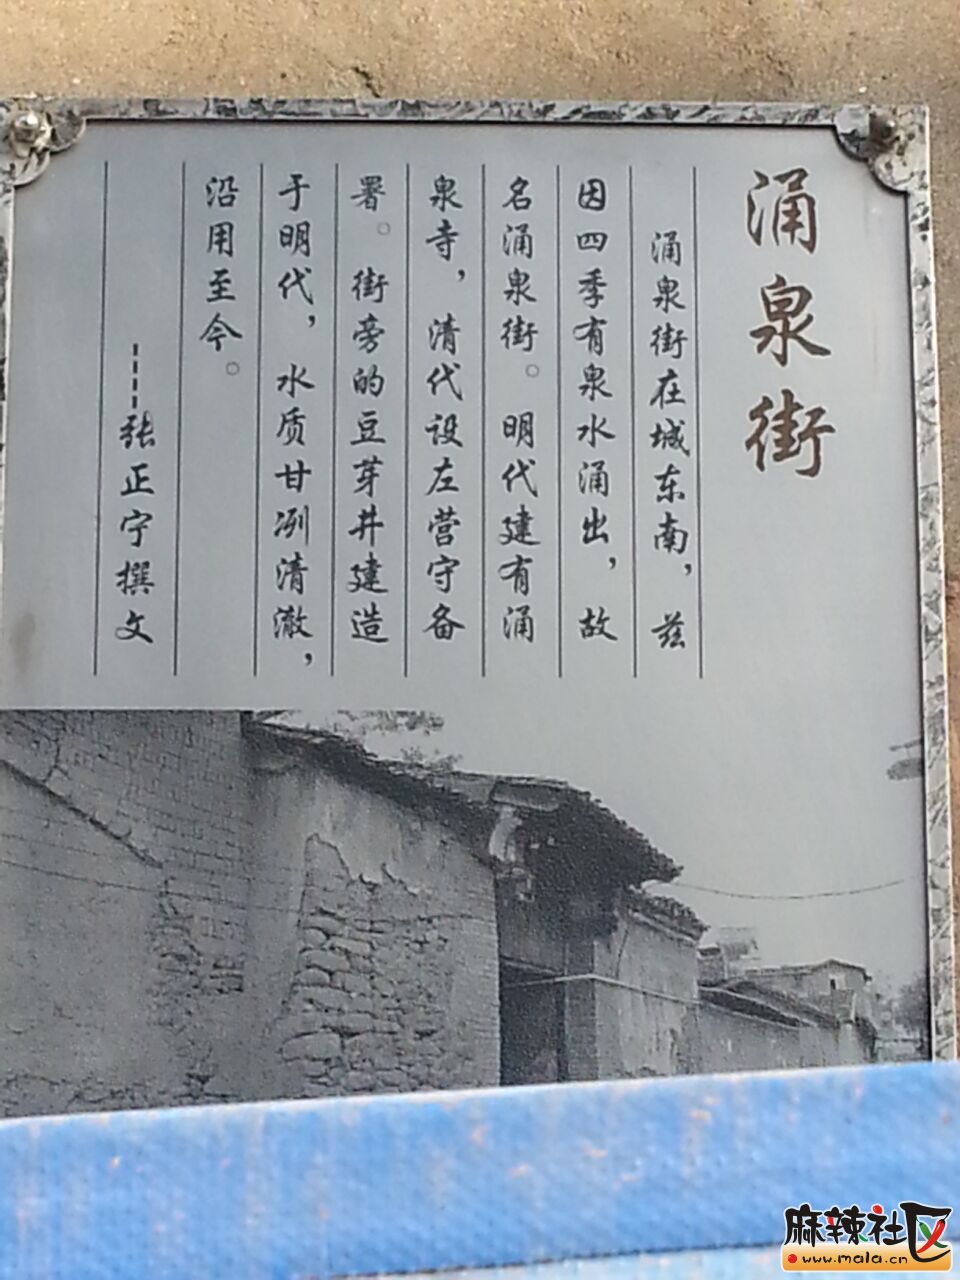 涌泉街
涌泉街在城东南，兹
因四季有泉水涌出，故
名涌泉街。明代建有涌
泉寺，清代设左营守备
署。街旁的豆芽井建造
于明代，水质甘冽清澈，
沿用至今。
-----张正宁撰文
麻辣社区
www.mala.cn